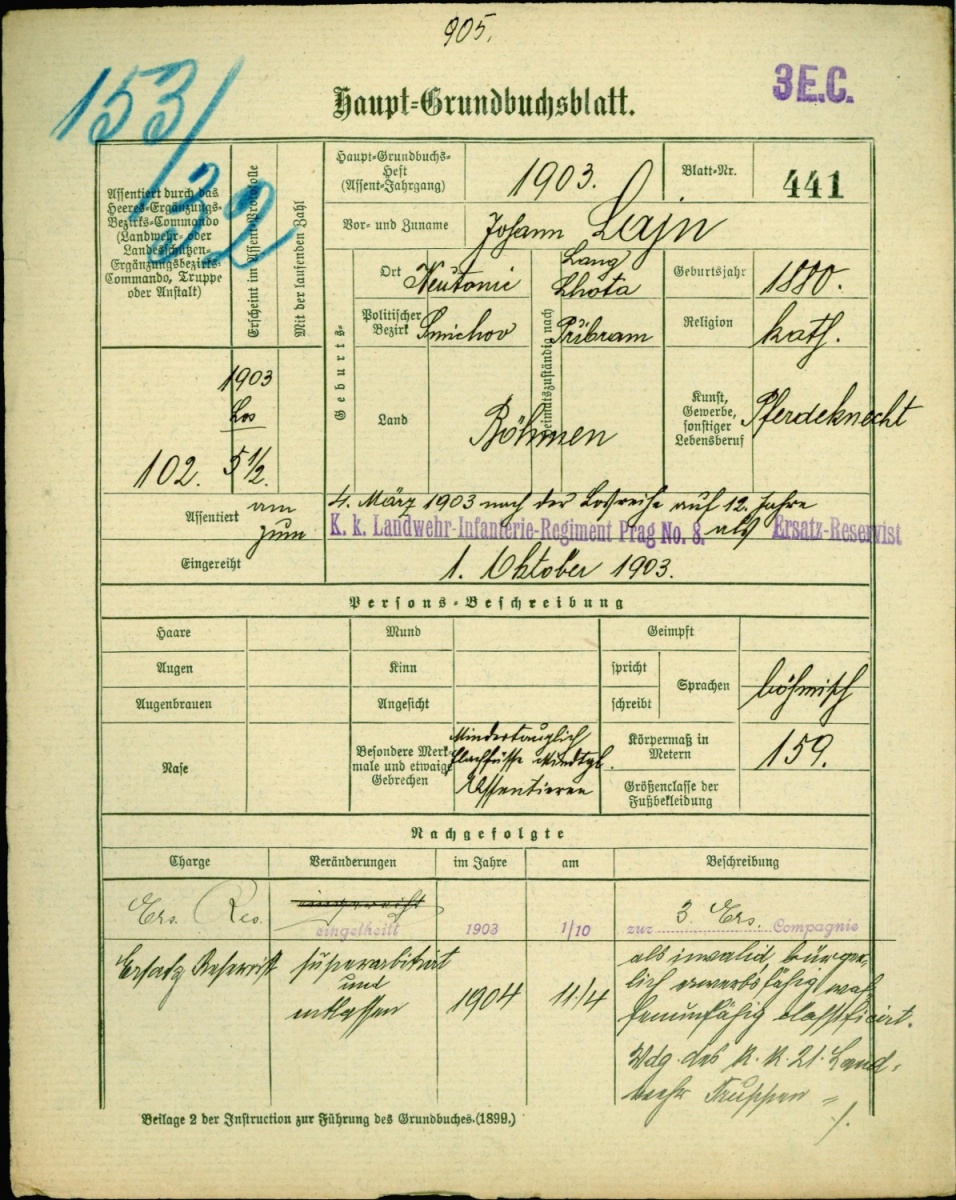 905.
153/
32
3 E.C.
Haupt-Grundbuchsblatt.
Assentiert durch das
Heeres-Ergänzungs-
Bezirks-Commando
(Landwehr- oder
Landesschützen-
Ergänzungsbezirks-
Commando, Truppe
oder Anstalt)
Erscheint im Assent-Protokolle
Mit der laufenden Zahl
Haupt-Grundbuchs-
Heft
(Assent-Jahrgang)
1903.
Blatt-Nr.
441
Vor- und Zuname
Johann Lajn
Geburts-
Ort
Heimatszuständig nach
Lang
Lhota
Geburtsjahr
1880.
Politischer
Bezirk
Smichov
Přibram
Religion
kath.
Land
Böhmen
Kunst,
Gewerbe,
sonstiger
Lebensberuf
Pferdeknecht
1903
Los
102. 5 1/2.
Assentiert
am
4. März 1903 nach der Losreihe auf 12 Jahre
zum
K. k. Landwehr-Infanterie-Regiment Prag No. 8. als Ersatz-Reservist
Eingereiht
1. Oktober 1903.
Persons-Beschreibung
Haare
Mund
Geimpft
Augen
Kinn
spricht
Sprachen
böhmisch
Augenbrauen
Angesicht
schreibt
Nase
Besondere Merk-
male und etwaige
Gebrechen
Mindertauglich
Plachfüsse Mindtgl.
Assentieren
Körpermaß in
Metern
159.
Größenclasse der
Fußbekleidung
Nachgefolgte
Charge
Veränderungen
im Jahre
am
Beschreibung
Ers. Res.
eingereiht
eingetheilt
1903
1/10
zur 3. Ers. Compagnie
Ersatz Reservist
superarbitrirt
und
entlassen
1904
11./4
als invalid, bürger-
lich erwerbsfähig waf
fenunfähig classificirt.
Vdg. des k. k. 21. Land-
wehr Truppen =
./.
Beilage 2 der Instruction zur Führung des Grundbuches.(1899.)